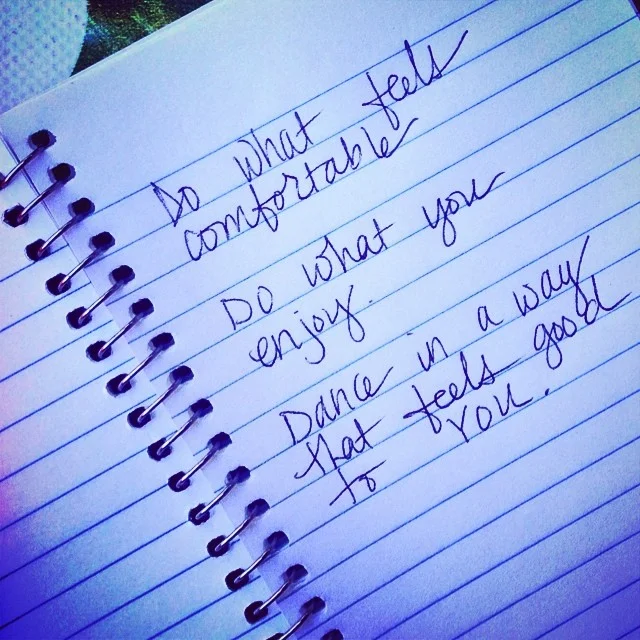 Do what feels
comfortable
Do what you
enjoy.
Dance in a way
that feels good
to YOU.